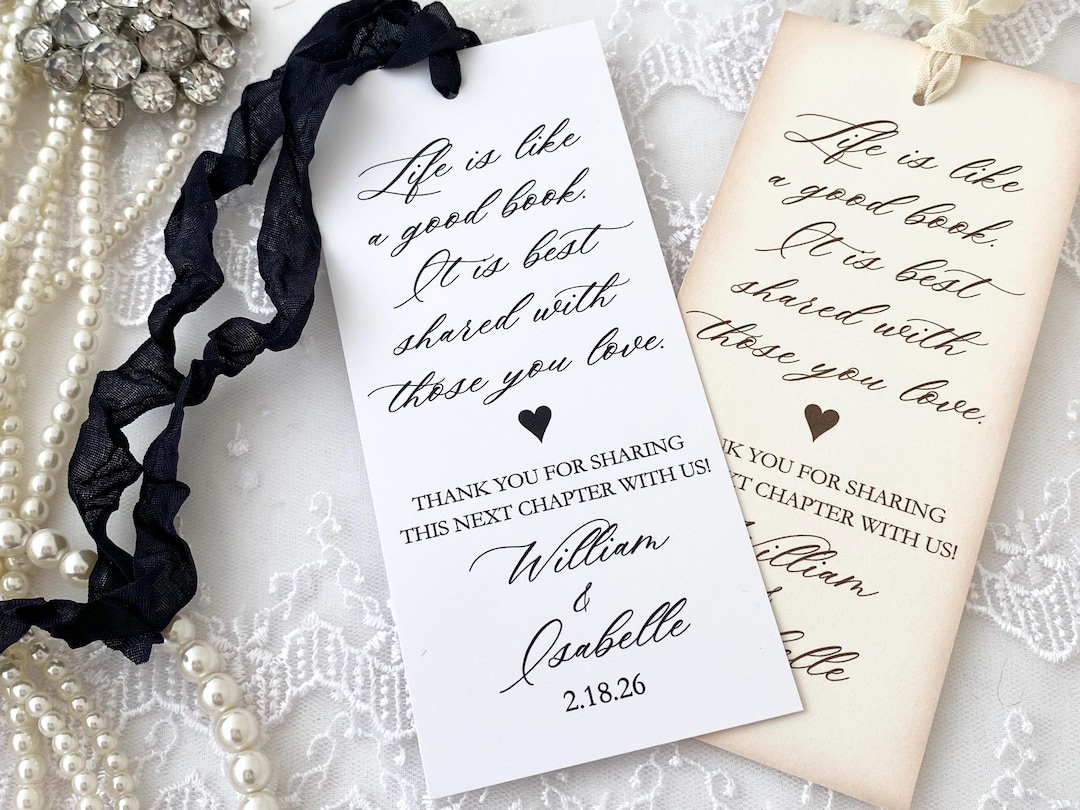 Life is like
a good book.
It is best
shared with
those you love.
THANK YOU FOR SHARING
THIS NEXT CHAPTER WITH US!
William
&
Isabelle
2.18.26
Life is like
a good book.
It is best
shared with
those you love.
YOU FOR SHARING
CHAPTER WITH US!
William